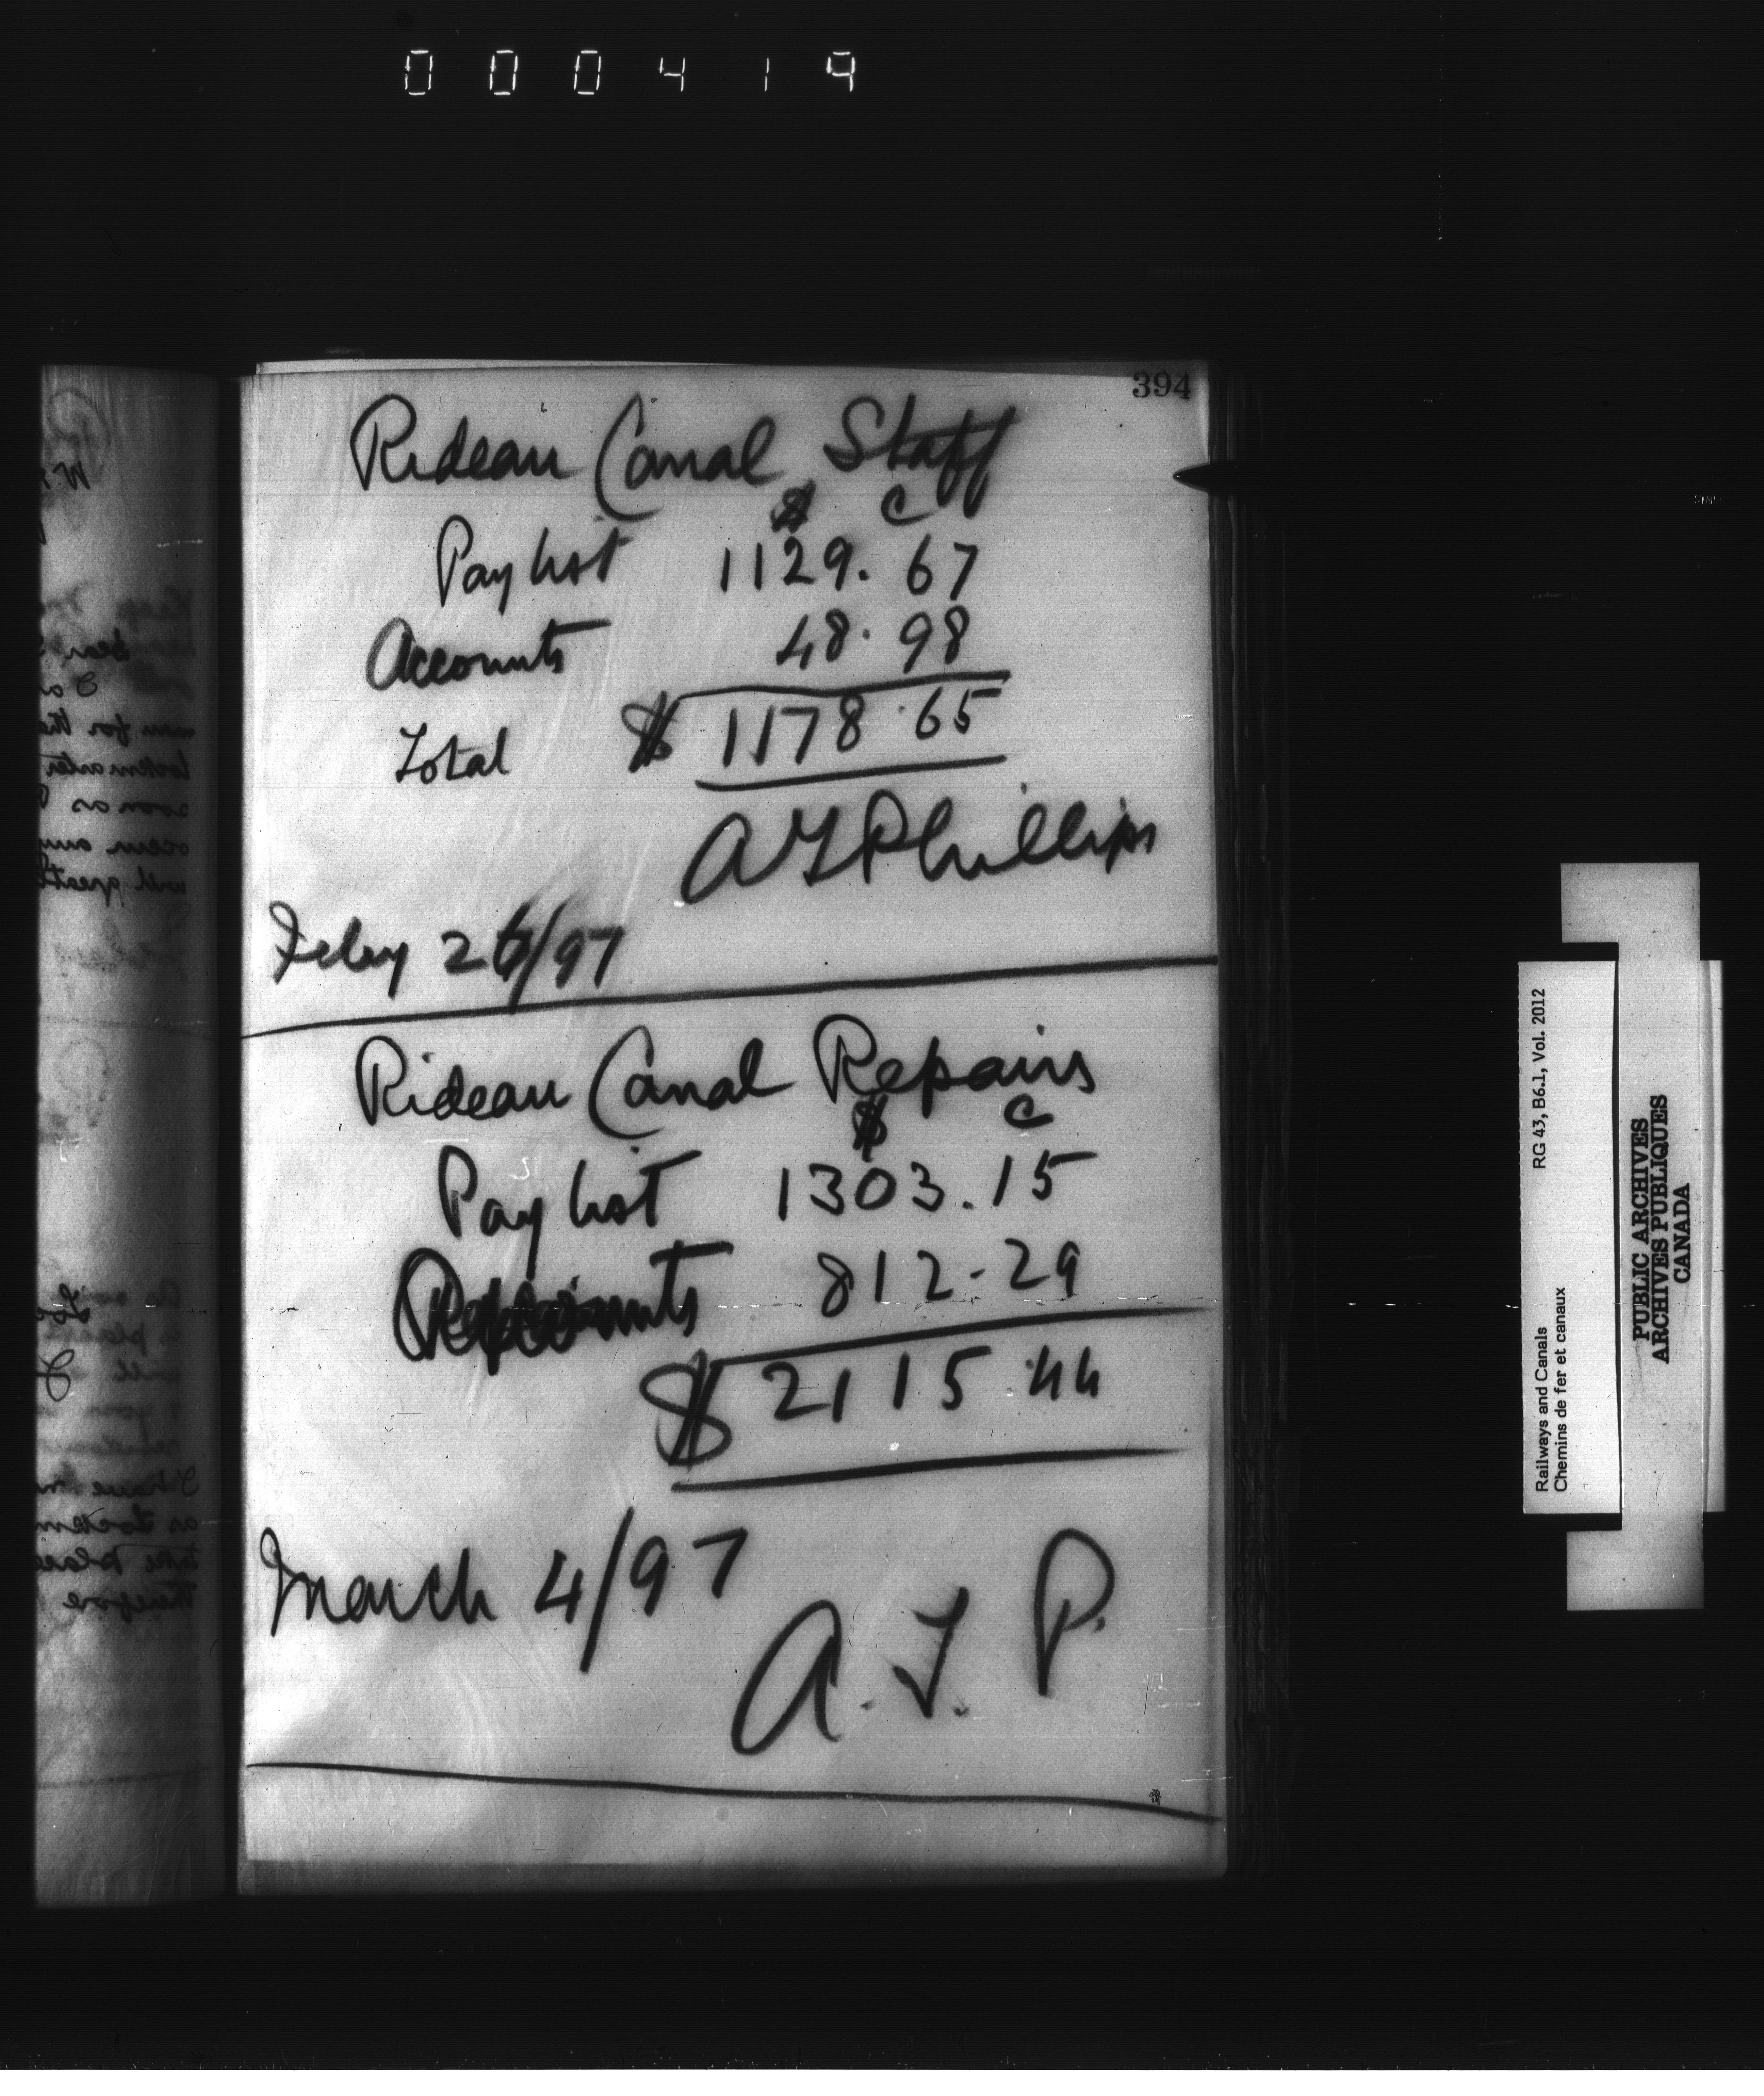 000419
394
Rideau Canal Staff
$ c
Pay list 1129. 67
Accounts 48. 98
Total $ 1178.65
A T Phillips
Feby 26/97
Rideau Canal Repairs
$ c
Pay list 1303.15
Accounts 812.29
$ 2115.44
March 4/97
A. T. P.
Railways and Canals RG 43, B6.1, Vol. 2012
Chemins de fer et canaux
PUBLIC ARCHIVES
ARCHIVES PUBLIQUES
CANADA